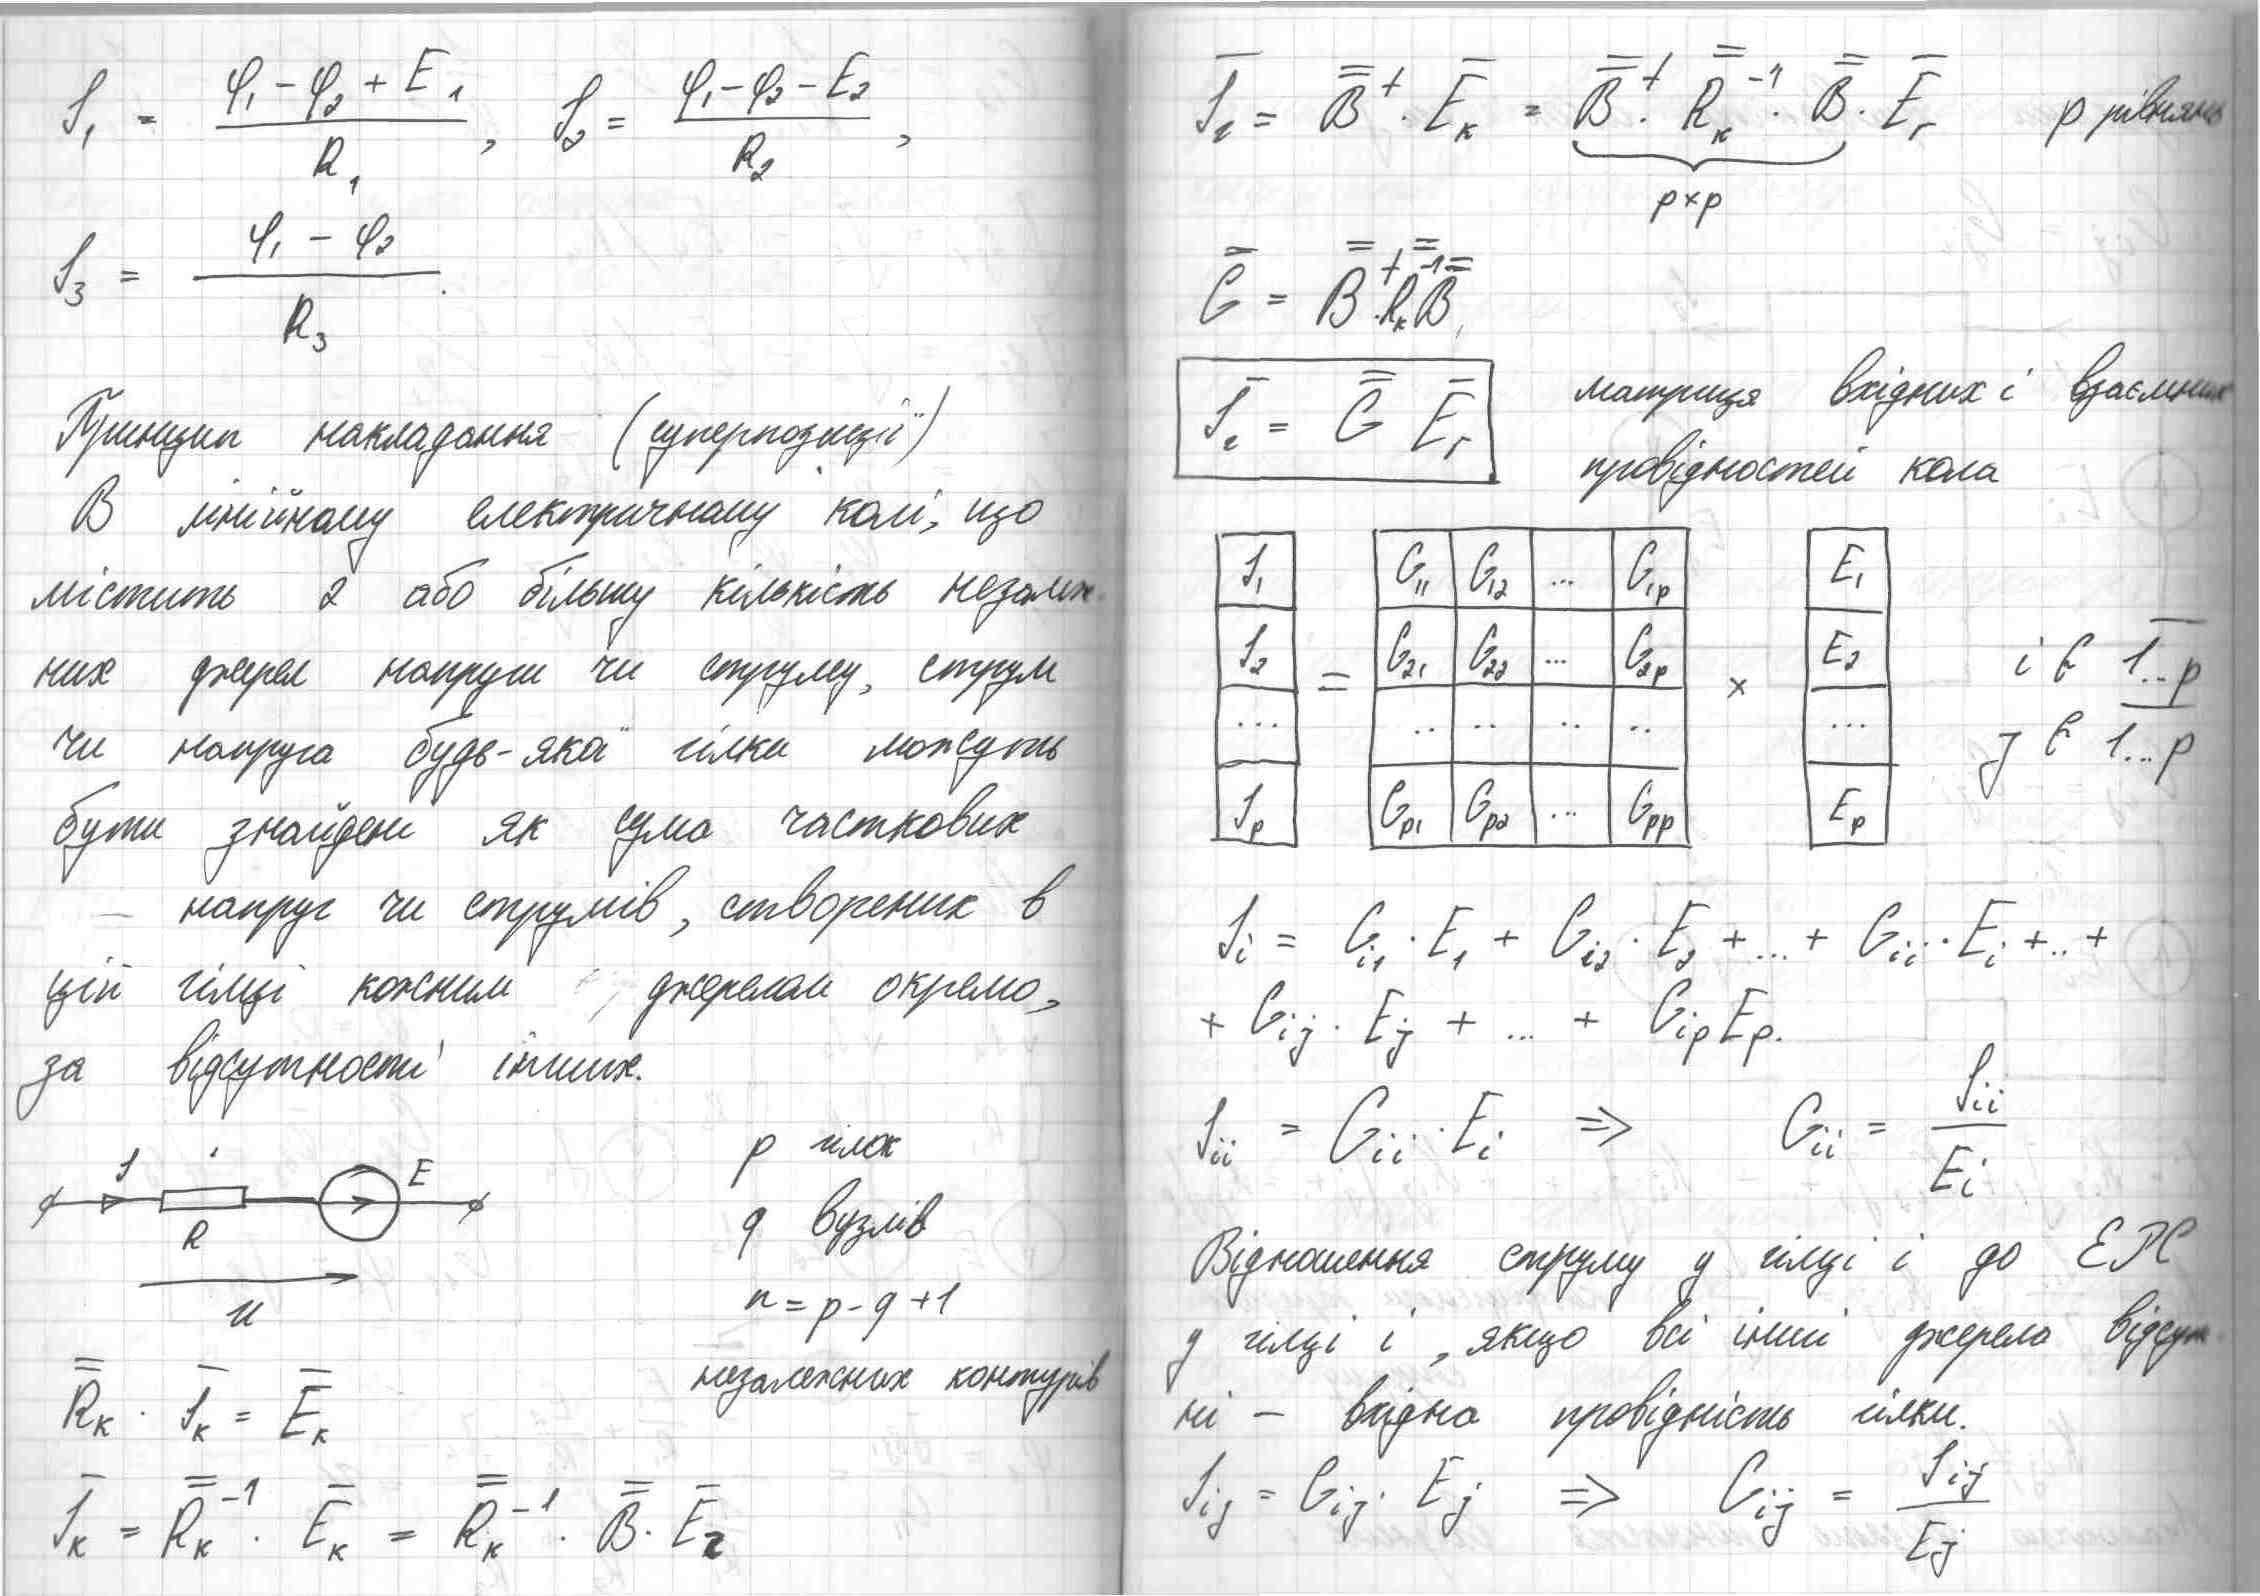 I₁ = (φ₁ − φ₂ + E₁) / R₁ , I₂ = (φ₁ − φ₂ − E₂) / R₂ ,
I₃ = (φ₁ − φ₂) / R₃ .
Принцип накладання (суперпозиції)
В лінійному електричному колі, що
містить 2 або більшу кількість незалеж-
них джерел напруги чи струму, струм
чи напруга будь-якої гілки можуть
бути знайдені як сума часткових
напруг чи струмів, створених в
цій гілці кожним джерелом окремо,
за відсутності інших.
I E
R
U
p гілок
q вузлів
n = p - q + 1
незалежних контурів
R̿ₖ · I̅ₖ = E̅ₖ
I̅ₖ = R̿ₖ⁻¹ · E̅ₖ = R̿ₖ⁻¹ · B̿ · E̅г
I̅г = B̿ᵗ · E̅ₖ = B̿ᵗ · R̿ₖ⁻¹ · B̿ · E̅г p рівнянь
p×p
G̿ = B̿ᵗ · R̿ₖ⁻¹ B̿,
I̅г = G̿ E̅г матриця вхідних і взаємних
провідностей кола
I₁ G₁₁ G₁₂ ... G₁p E₁
I₂ = G₂₁ G₂₂ ... G₂p × E₂ i ∈ 1..p
... .. .. .. .. ... j ∈ 1...p
Ip Gp₁ Gp₂ ... Gpp Ep
Ii = Gi1 · E₁ + Gi2 · E₂ + ... + Gii · Ei + .. +
+ Gij · Ej + ... + Gip Ep.
Iii = Gii · Ei => Gii = Iii / Ei
Відношення струму у гілці i до ЕРС
у гілці i, якщо всі інші джерела відсут-
ні – вхідна провідність гілки.
Iij = Gij · Ej => Gij = Iij / Ej